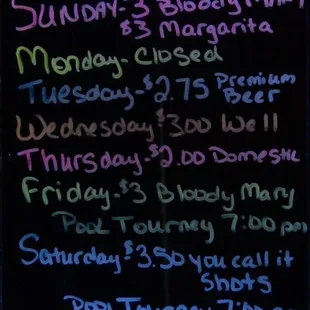 SUNDAY-$3 Bloody Mary
$3 Margarita
Monday-Closed
Tuesday-$2.75 Premium
Beer
Wednesday $3.00 Well
Thursday-$2.00 Domestic
Friday-$3 Bloody Mary
Pool Tourney 7:00 pm
Saturday $3.50 you call it
Shots
Pool Tourney 7:00 pm